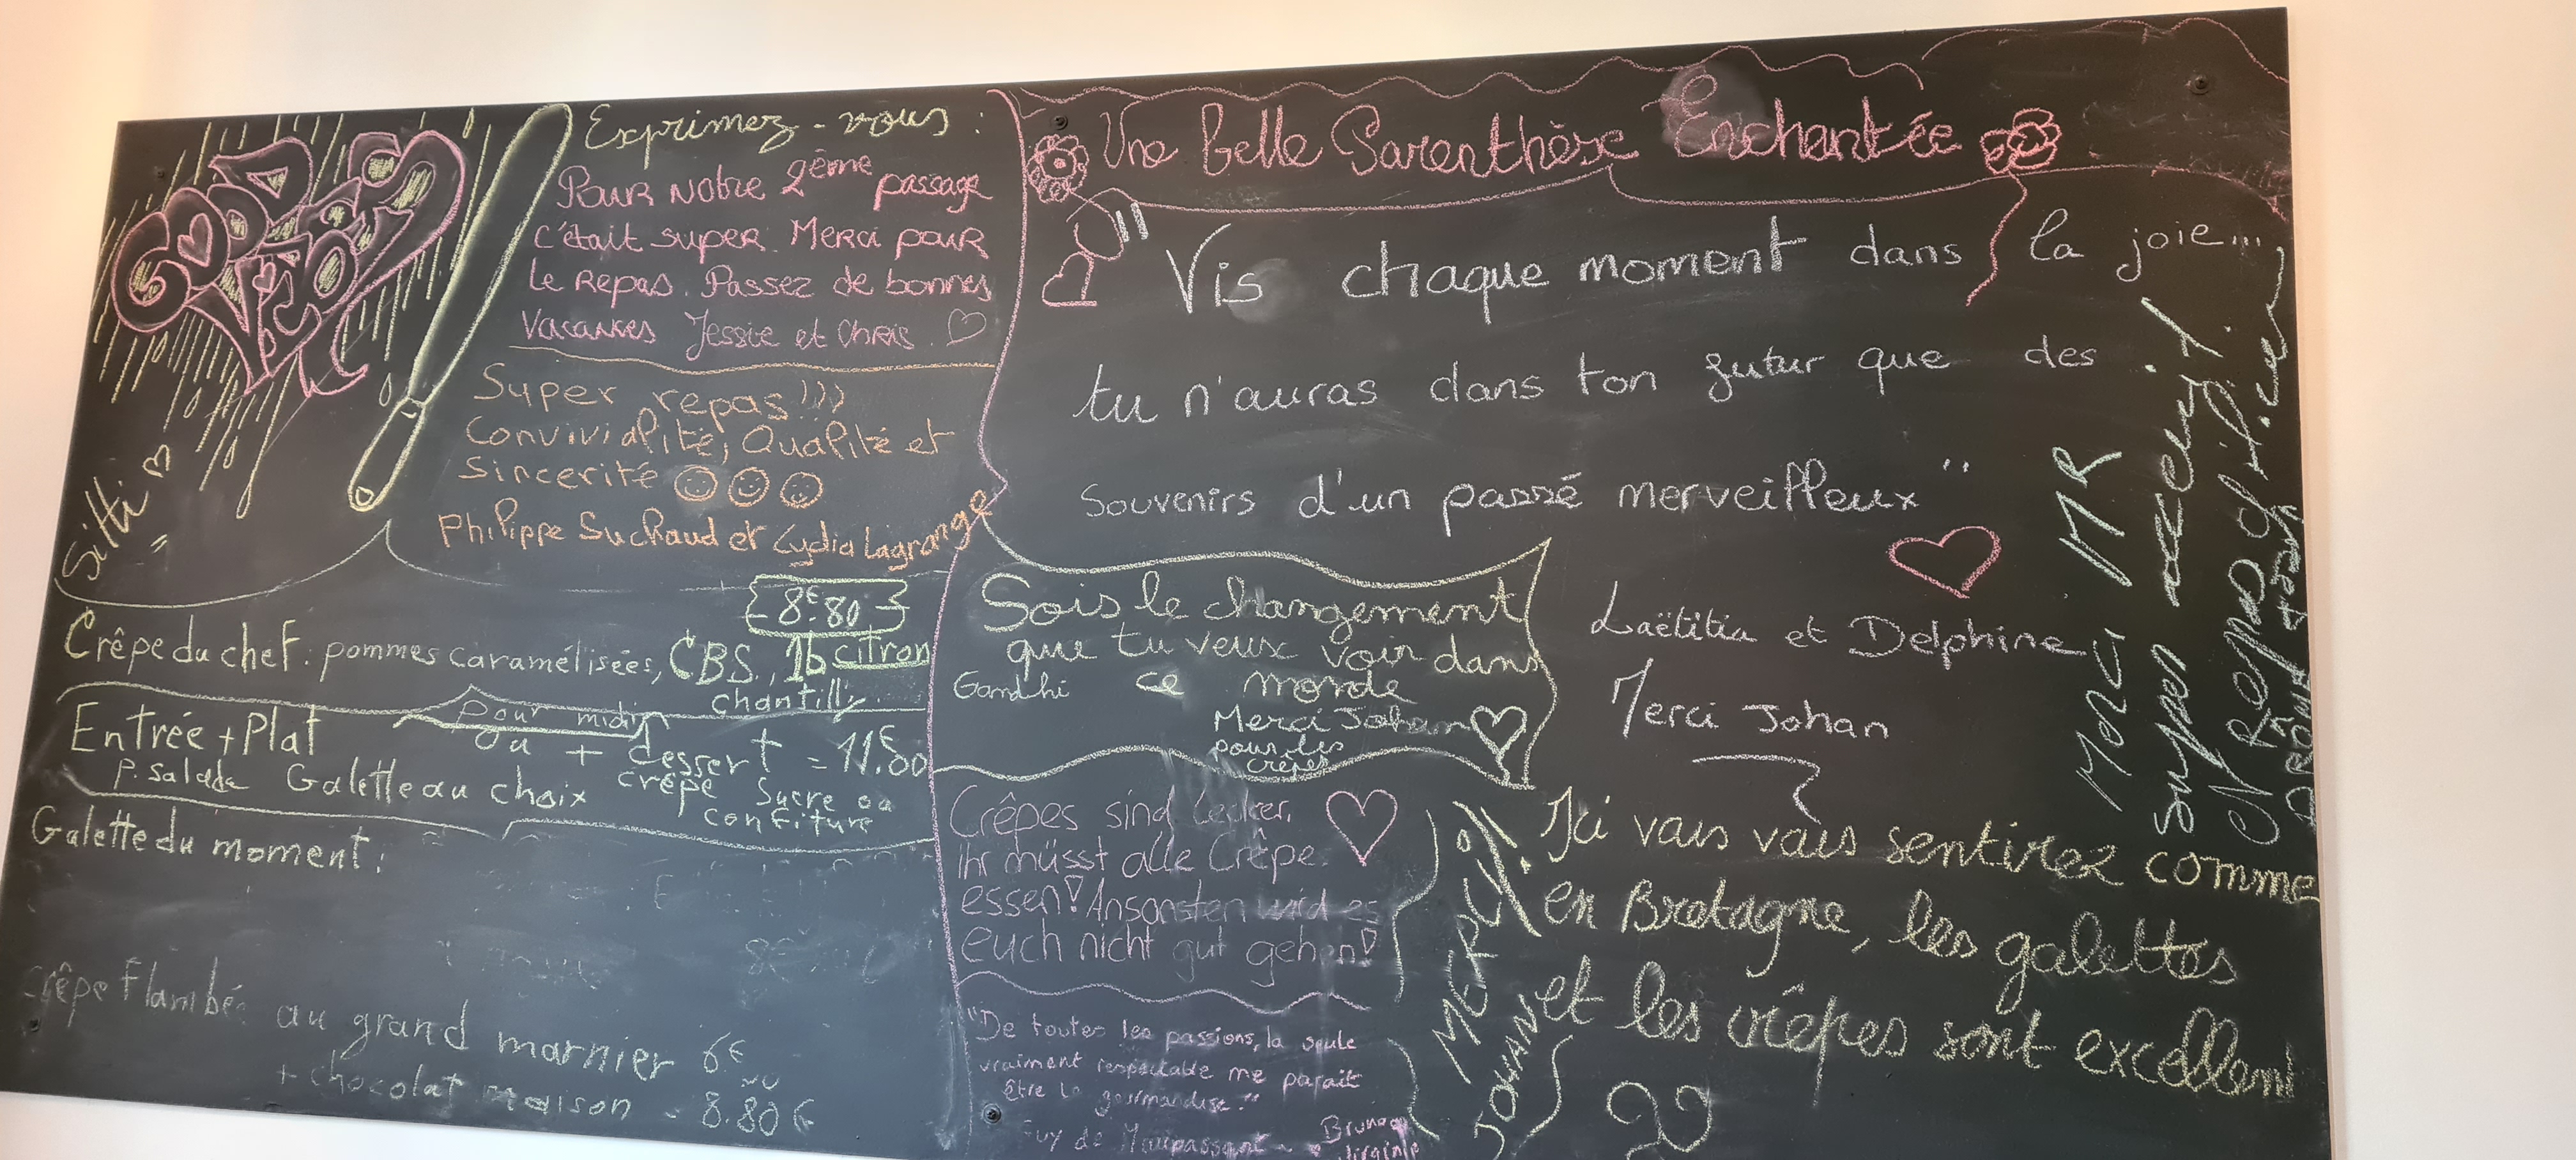 Exprimez-vous :
Pour Notre 2ème passage
c'était super. Merci pour
le repas. Passez de bonnes
Vacances Jessie et Chris.
Super repas!!!
Convivialité, Qualité et
sincerité
Philippe Suchaud et Lydia Lagrange
Sitti
8€.80
Crêpe du chef : pommes caramélisées, CBS, 1b citron
chantilly
pour midi
Entrée + Plat ou + dessert = 11€.80
P. salade Galette au choix crêpe Sucre ou
confiture
Galette du moment :
crêpe Flambée au grand marnier 6€
+ chocolat maison - 8.80€
Une Belle Parenthèse Enchantée
" Vis chaque moment dans la joie...
tu n'auras dans ton futur que des
souvenirs d'un passé merveilleux "
Laëtitia et Delphine
Merci Johan
Sois le changement
que tu veux voir dans
Gandhi ce monde
Merci Johan
pour les
crêpes
Crêpes sind lecker.
Ihr müsst alle Crêpe
essen! Ansonsten wird es
euch nicht gut gehen!
"De toutes les passions, la seule
vraiment respectable me paraît
être la gourmandise."
Guy de Maupassant
Bruno
Virginie
Merci MR
super accueil!
Repas délicieux
Ici vous vous sentirez comme
en Bretagne, les galettes
et les crêpes sont excellent
MERCI!
JOHAN